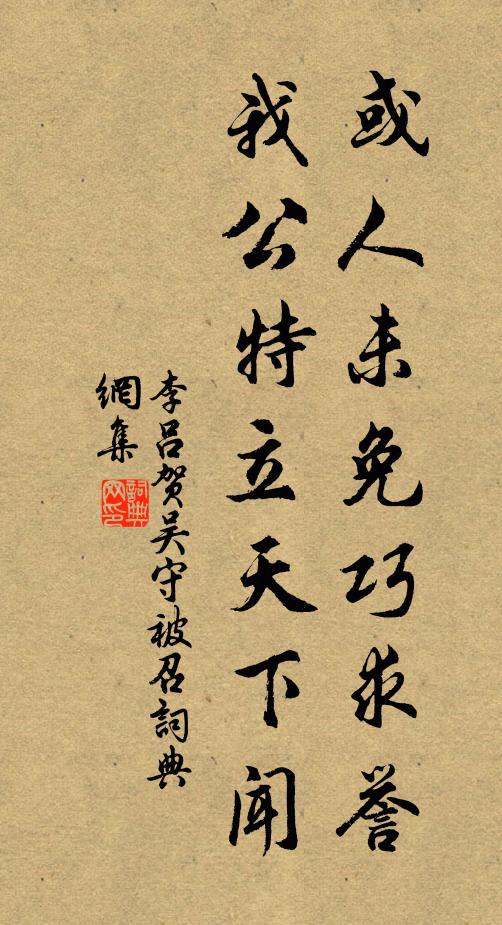 或人未免巧求誉
我公特立天下闻
李吕贺吴守被召詞典
網集
詞典
网印